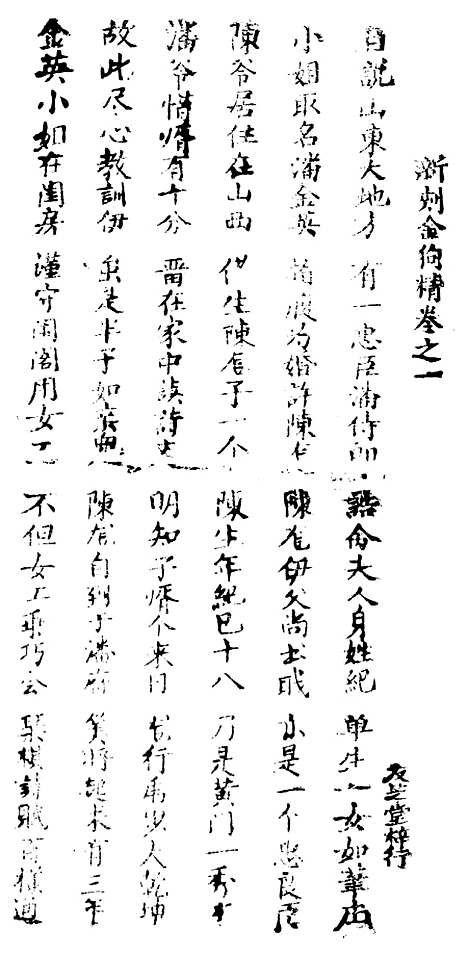 新刻金狗精卷之一 芝堂梓行
說山東大地方 有一忠臣潘侍郎 誥命夫人身姓紀 單生一女如
小姐取名潘金英 為婚許陳 陳伊父尚士职 亦是一个忠良臣
陳爷居住在山西 生陳子一个 陳生年紀已十八 乃是黄门一秀才
潘爷惜婿有十分 留在家中读詩文 明知子婿不来日 行 人乾坤
故此尽心教訓伊 虽是半子如亲 陳自到于潘府 算將起来有三年
金英小姐在闺房 谨守闺阁用女工 不但女工乖巧会 琴棋詩賦百樣通